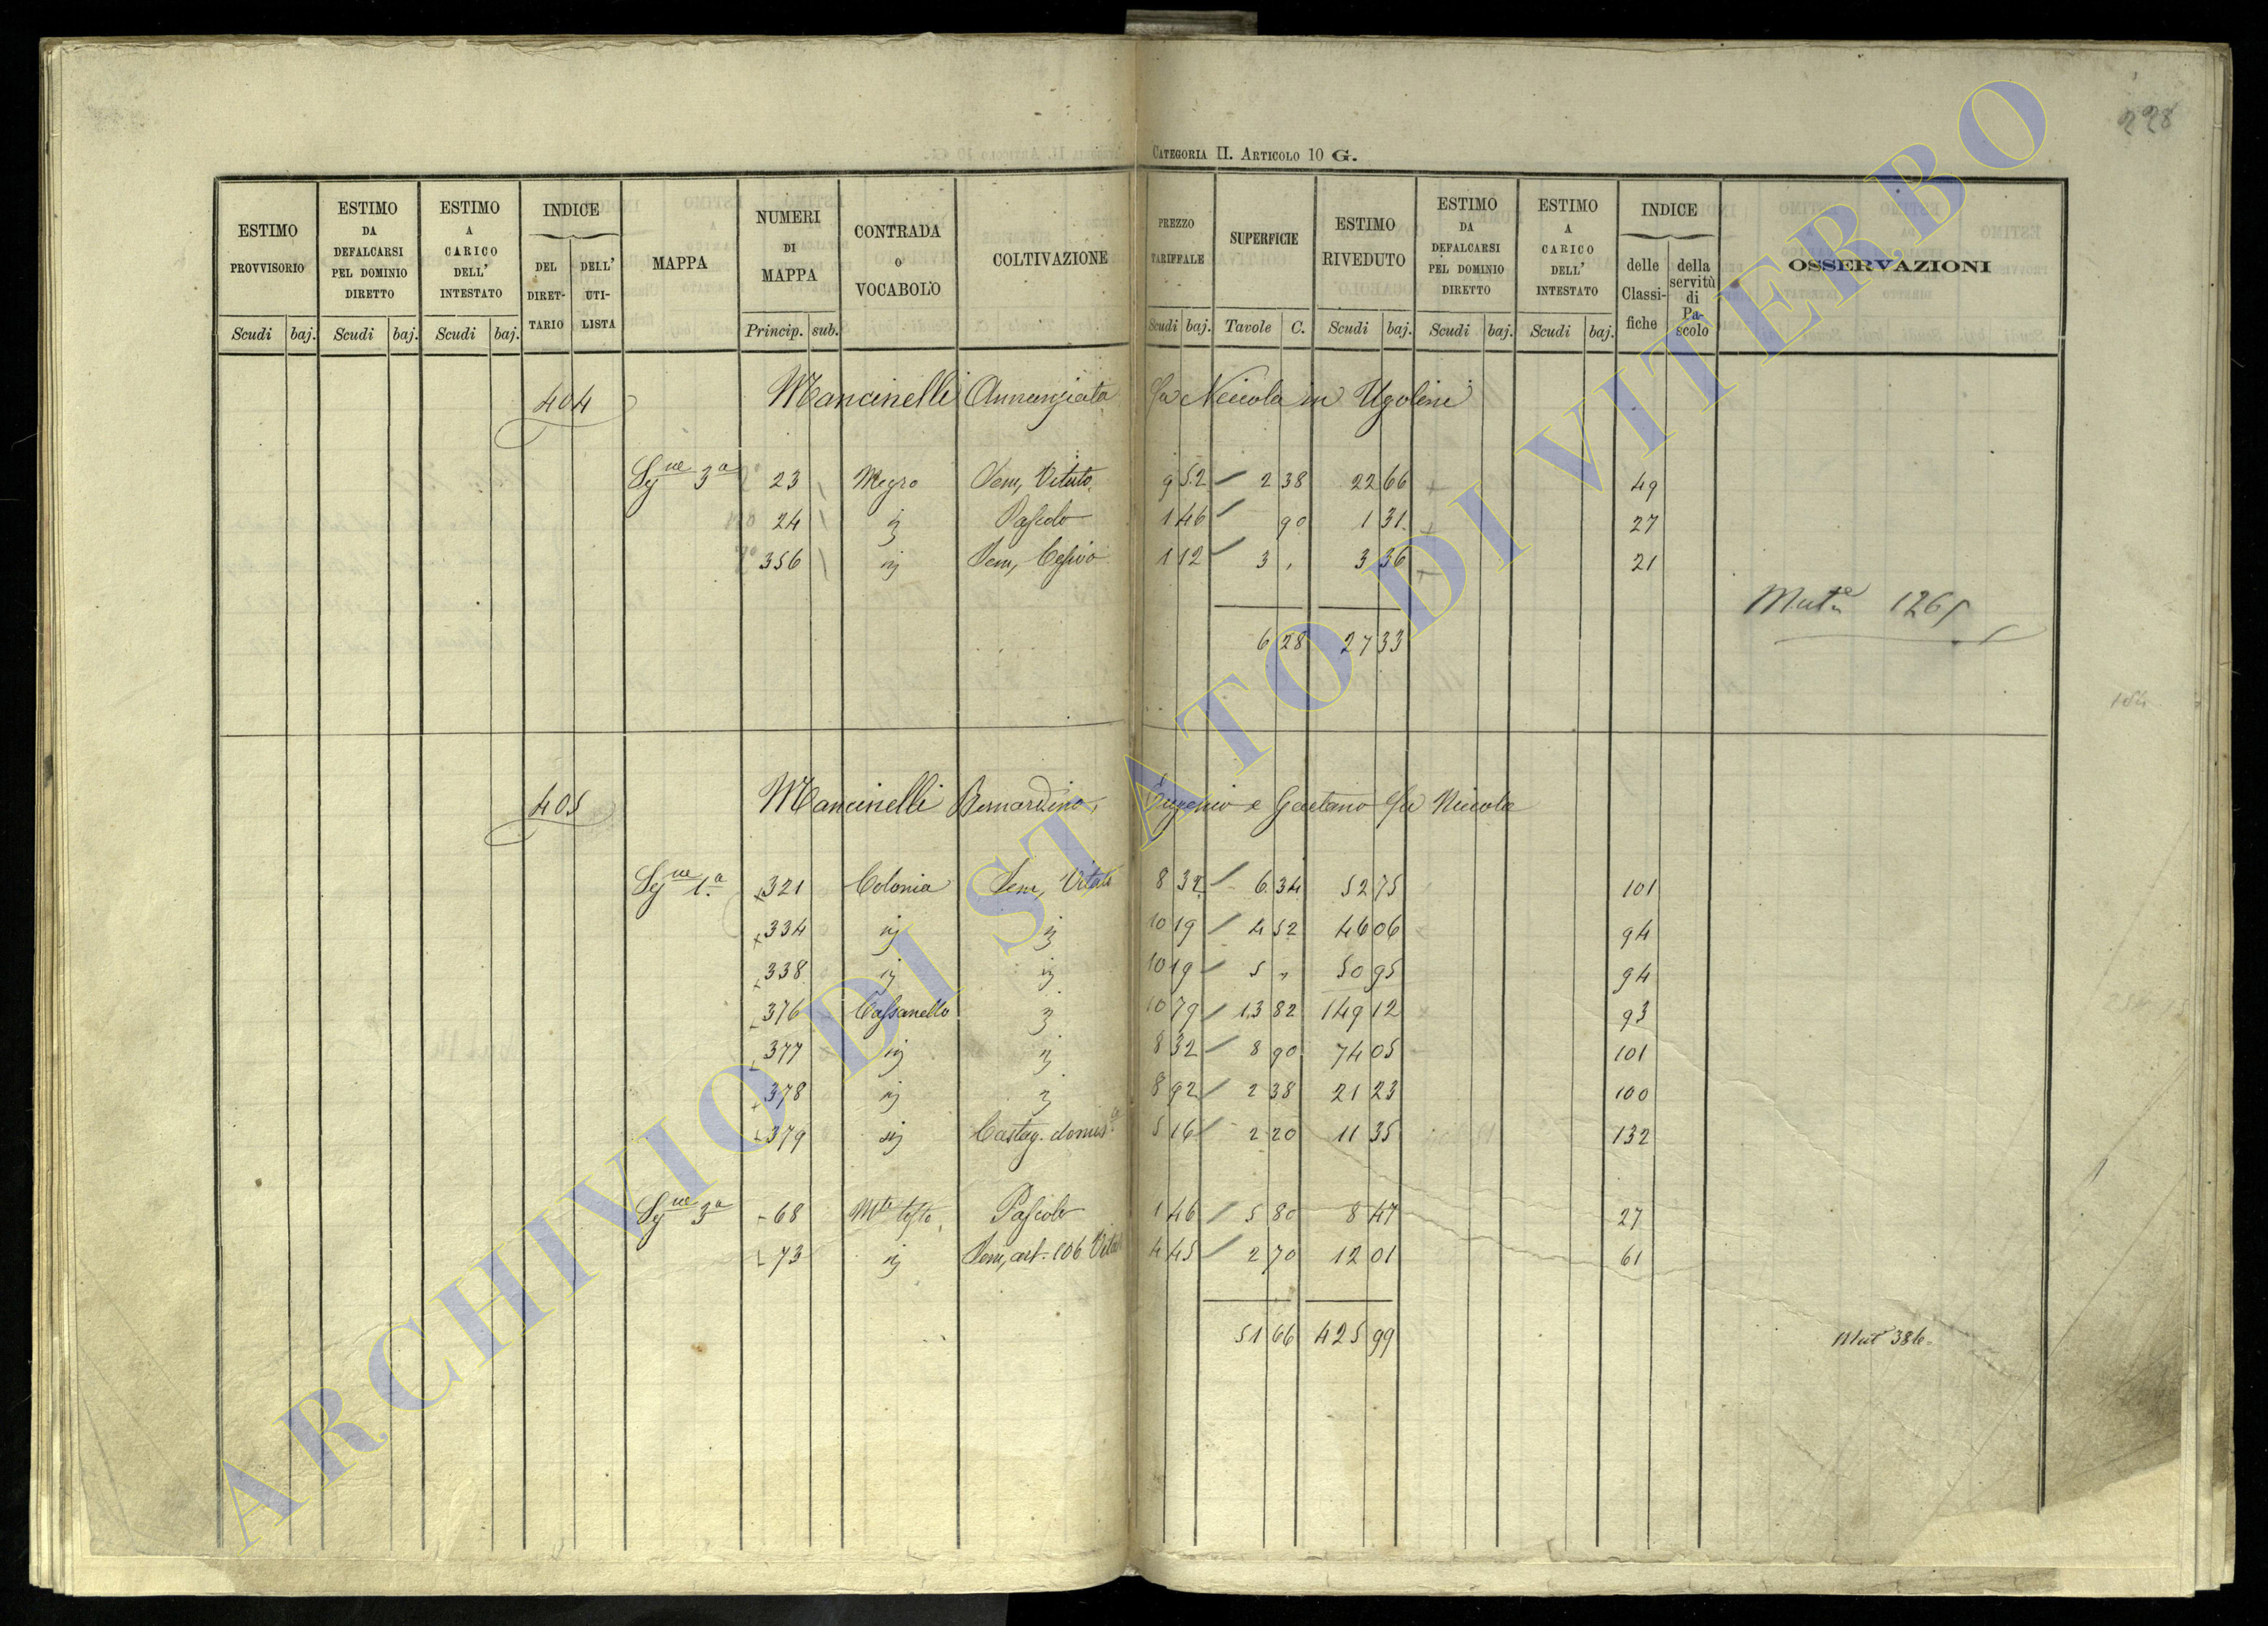 228
CATEGORIA II. ARTICOLO 10 G.
ESTIMO PROVVISORIO
ESTIMO DA DEFALCARSI PEL DOMINIO DIRETTO
ESTIMO A CARICO DELL' INTESTATO
INDICE
DEL DIRETTARIO
DELL' UTILISTA
MAPPA
NUMERI DI MAPPA
CONTRADA O VOCABOLO
COLTIVAZIONE
PREZZO TARIFFALE
SUPERFICIE
ESTIMO RIVEDUTO
ESTIMO DA DEFALCARSI PEL DOMINIO DIRETTO
ESTIMO A CARICO DELL' INTESTATO
INDICE
delle Classifiche
della servitù di Pascolo
OSSERVAZIONI
Scudi baj. Scudi baj. Scudi baj. Princip. sub. Scudi baj. Tavole C. Scudi baj. Scudi baj. Scudi baj.
404 Mancinelli Annunziata fu Niccola in Ugolini
Sgne 3a 23 Megro Sem, Vitato 9 52 2 38 22 66 49
24 ij Pascolo 1 46 90 1 31 27
356 ij Sem, Cesivo 1 12 3 , 3 36 21
Mute 1265
6 28 27 33
405 Mancinelli Bernardino, Eugenio e Gaetano fu Niccola
Sgne 1a 321 Colonia Sem, Vitato 8 32 6 34 52 75 101
334 ij ij 10 19 4 52 46 06 94
338 ij ij 10 19 5 „ 50 95 94
376 Cassanello ij 10 79 13 82 149 12 93
377 ij ij 8 32 8 90 74 05 101
378 ij ij 8 92 2 38 21 23 100
379 ij Castag. domesca 5 16 2 20 11 35 132
Sgne 3a 68 Mte testo Pascolo 1 46 5 80 8 47 27
73 ij Sem, art. 106 Vitato 4 45 2 70 12 01 61
51 66 425 99
Mut 386
ARCHIVIO DI STATO DI VITERBO